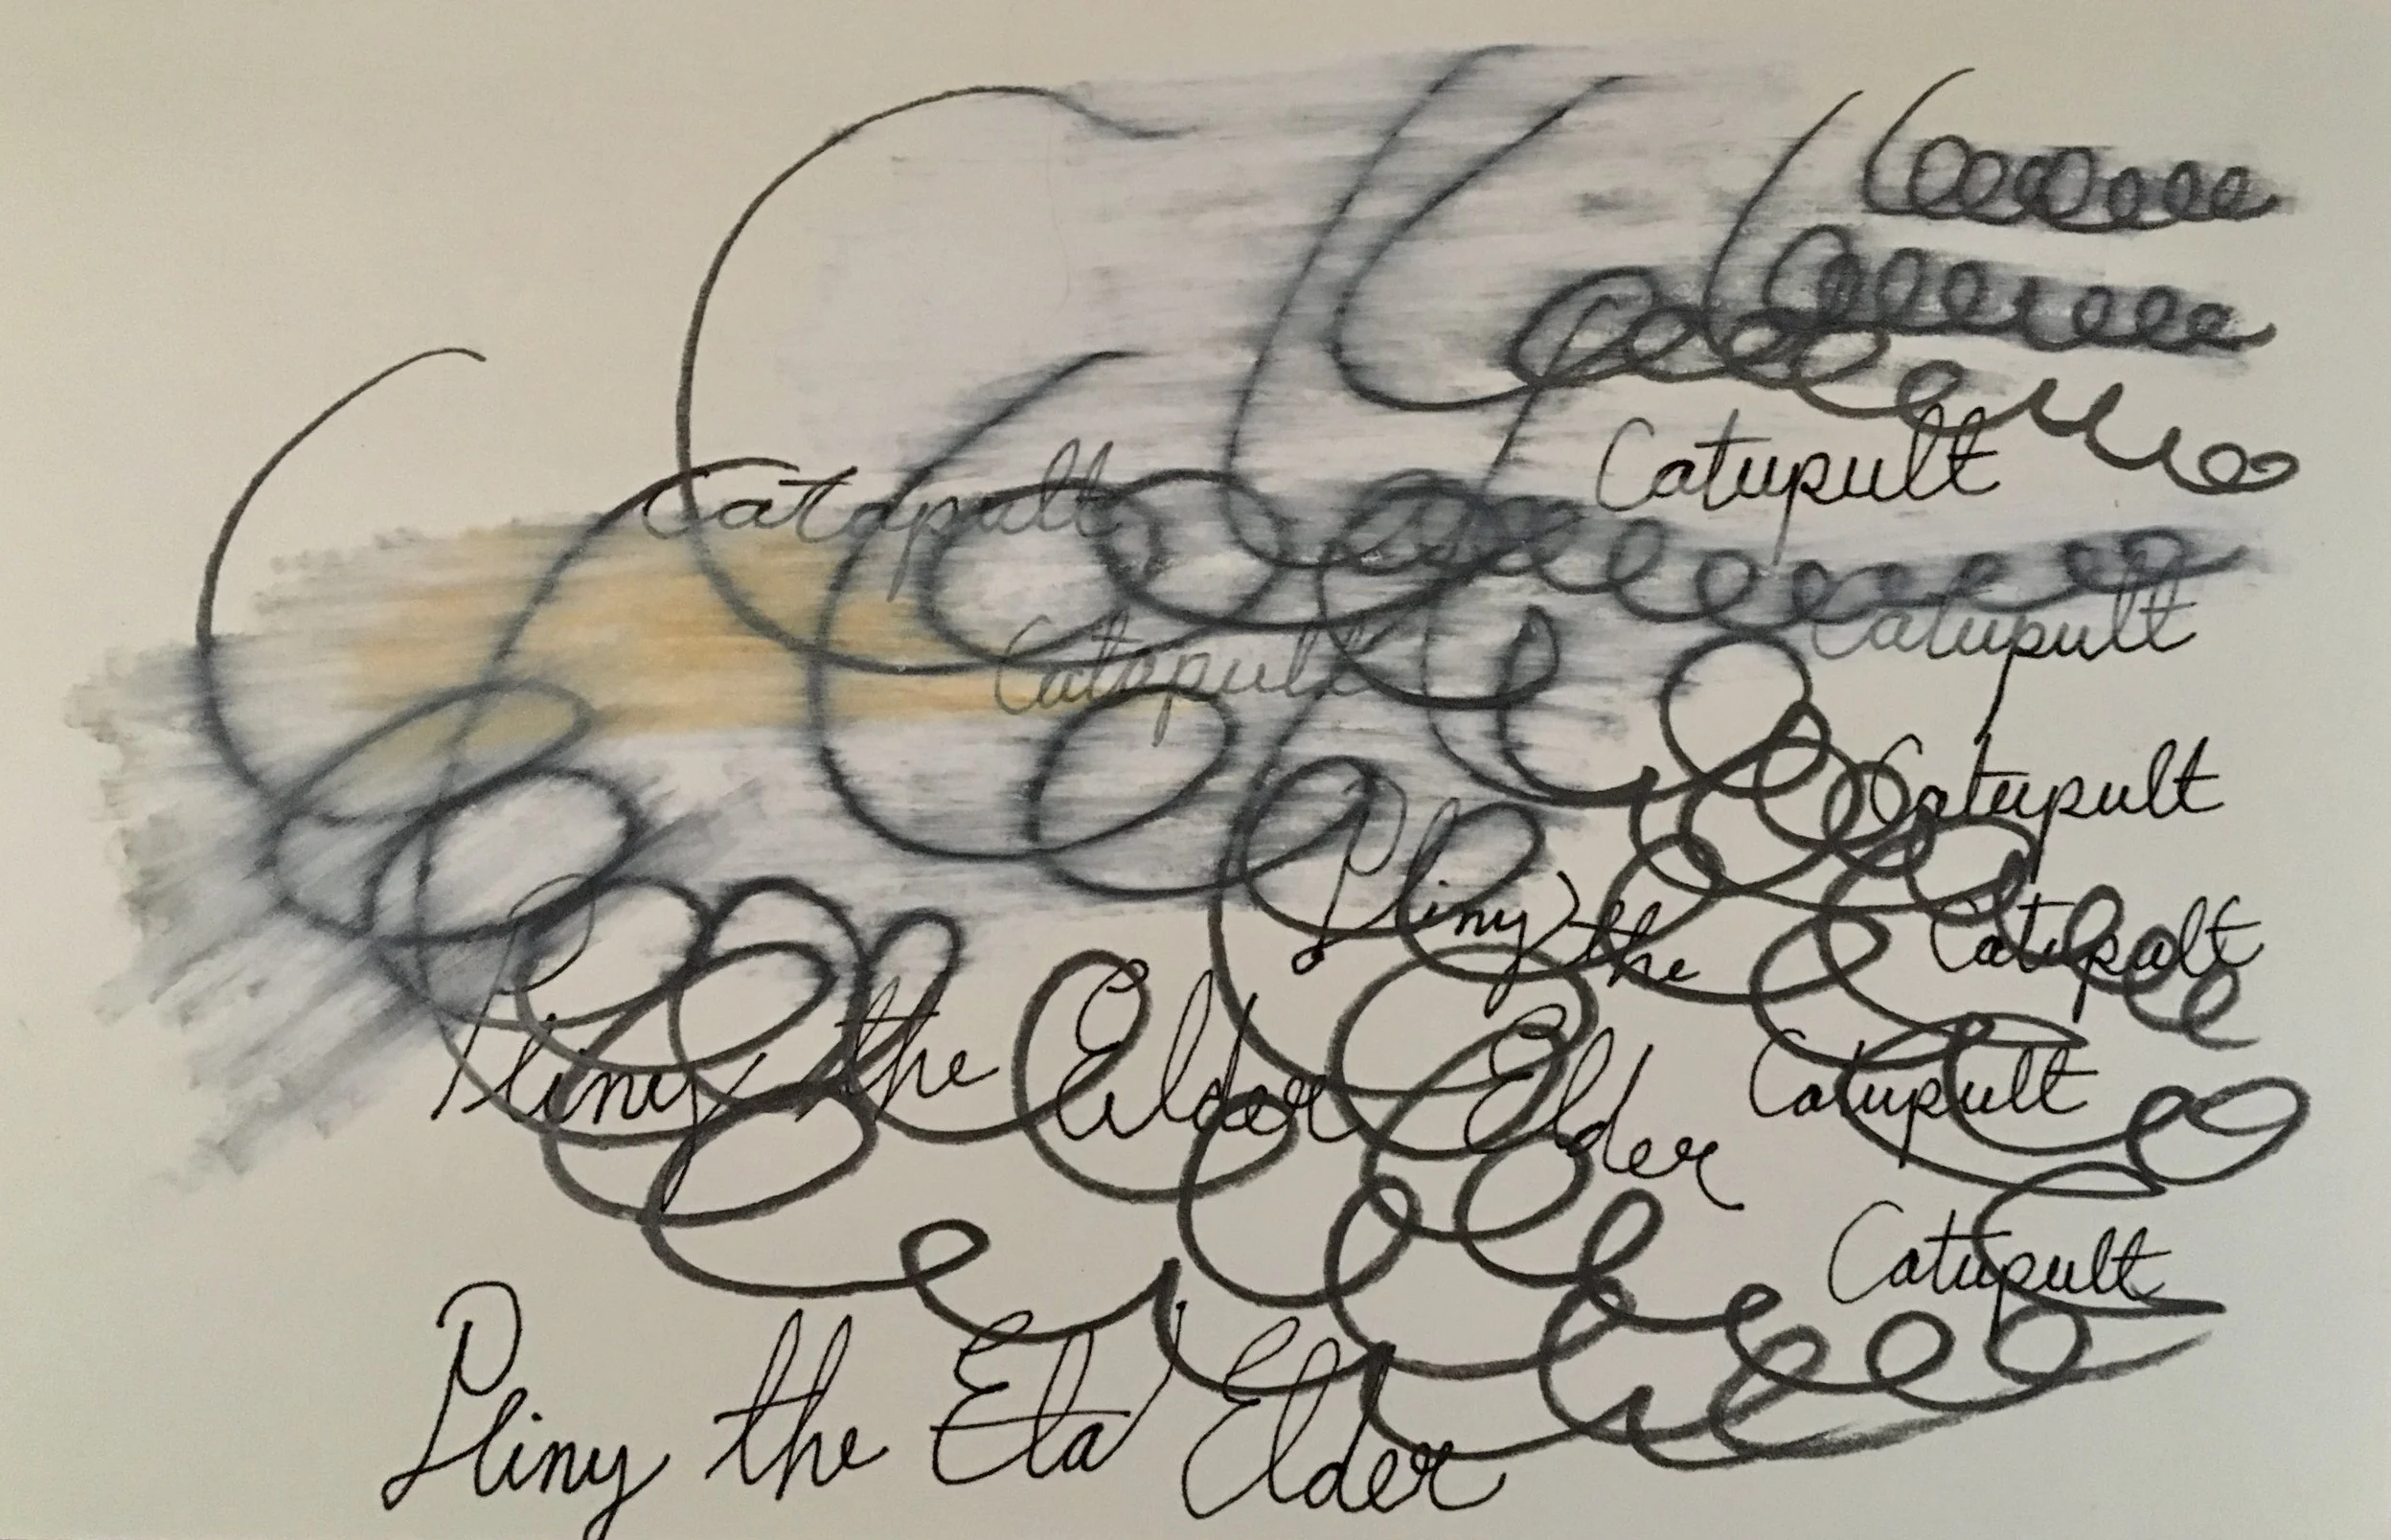 Catupult
Catapult
Catupult
Catapult
Catupult
Pliny the
Catupalt
Pliny the Elder
Elder
Catupult
Catupult
Pliny the Eta Elder